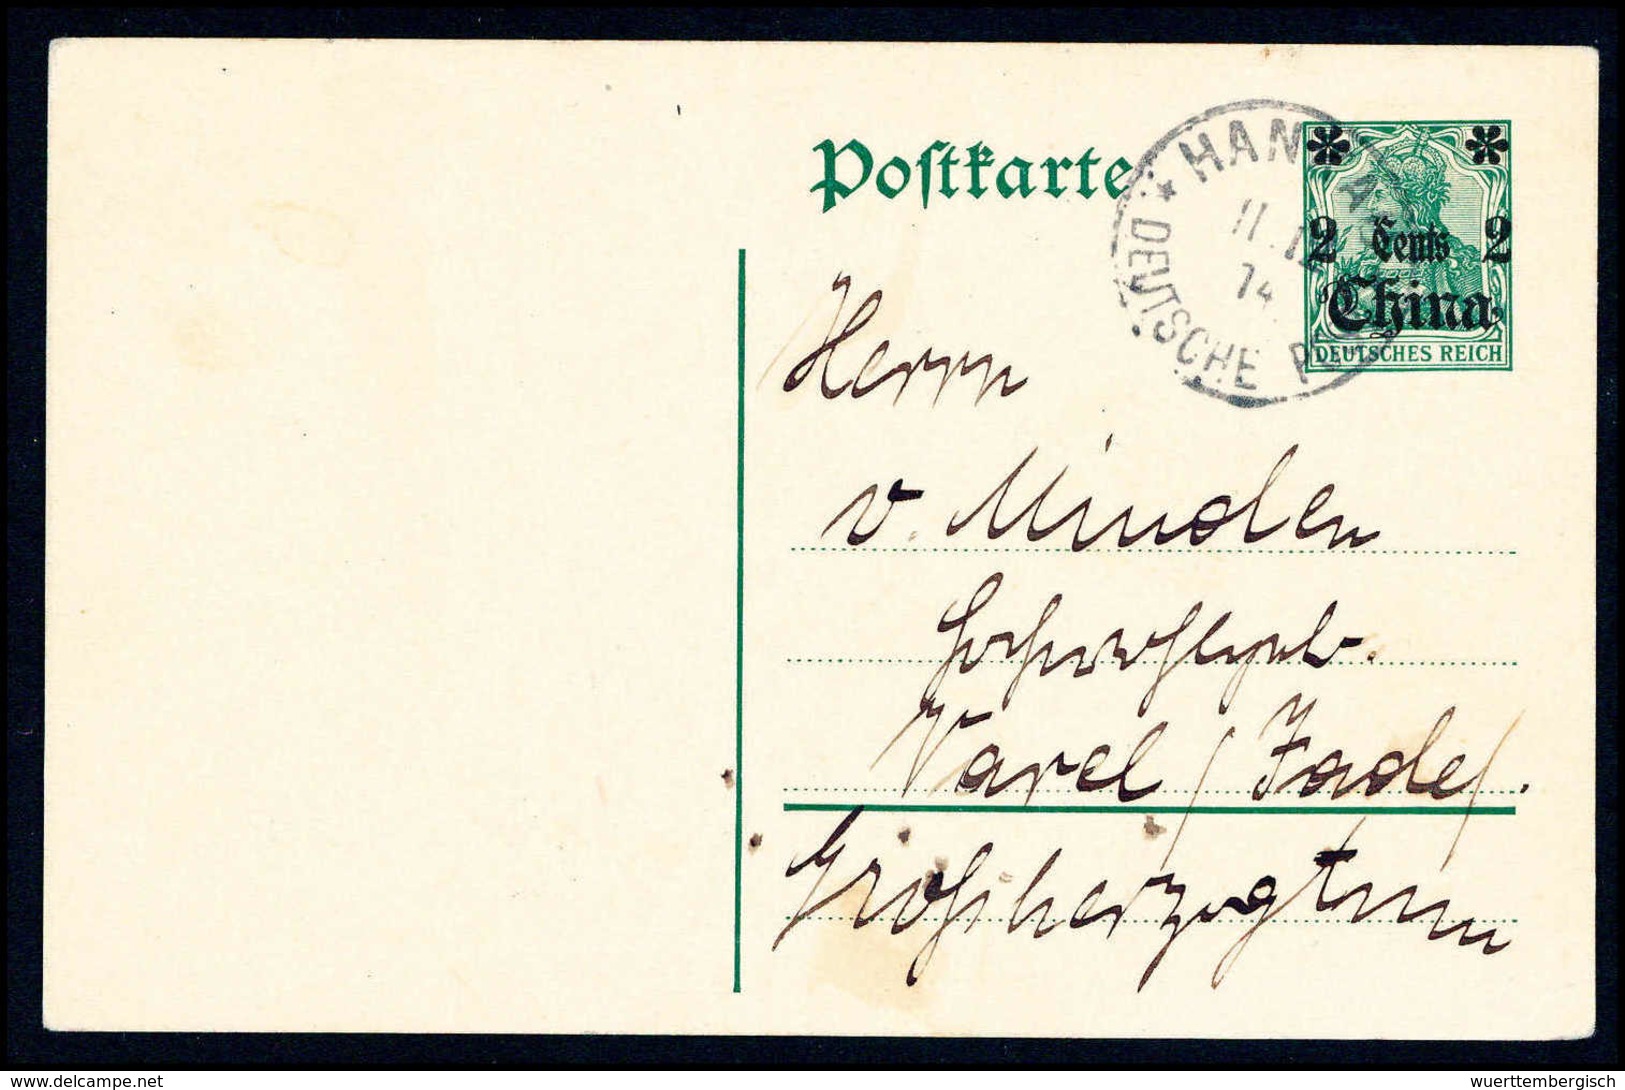 Postkarte
HAN
11.12
14
DEUTSCHE PO
2 Cents 2
China
DEUTSCHES REICH
Herrn
v. Minden
Varel / Jade /.
Großherzogtum
www.delcampe.net
wuerttembergisch